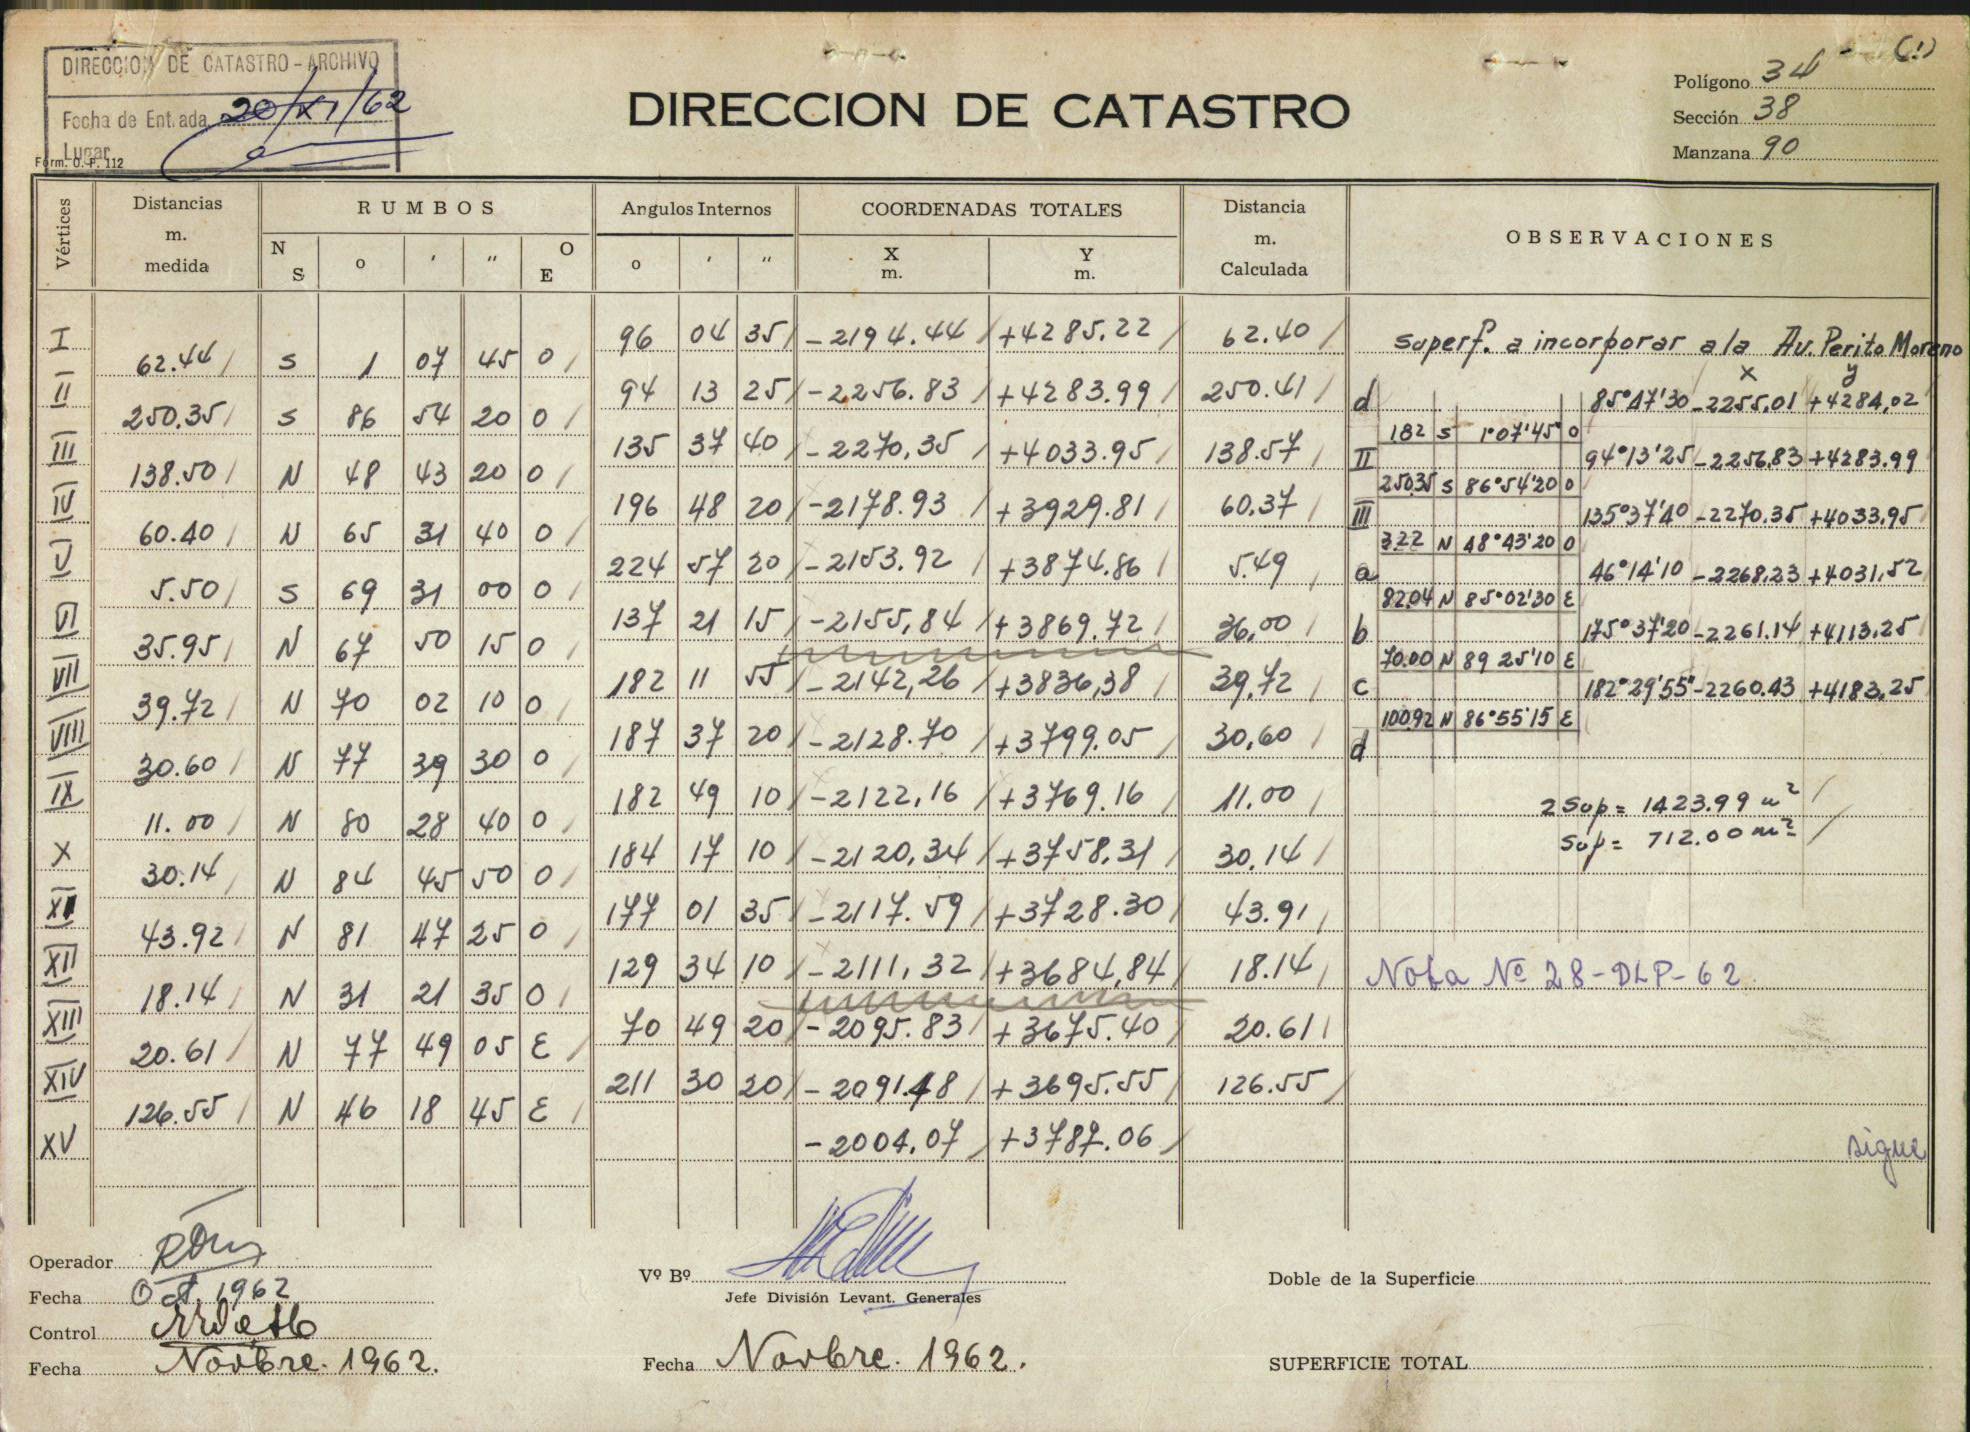 (1)
DIRECCION DE CATASTRO - ARCHIVO
Fecha de Entrada 20/XI/62
Lugar
Form. O. P. 112
DIRECCION DE CATASTRO
Polígono 34
Sección 38
Manzana 90
Vértices
Distancias m. medida
RUMBOS
N S o ' " O E
Angulos Internos
o ' "
COORDENADAS TOTALES
X m. Y m.
Distancia m. Calculada
OBSERVACIONES
I 96 04 35 -2194.44 +4285.22 62.40
62.44 S 1 07 45 O
II 94 13 25 -2256.83 +4283.99 250.41
250.35 S 86 54 20 O
III 135 37 40 -2270,35 +4033.95 138.57
138.50 N 48 43 20 O
IV 196 48 20 -2178.93 +3929.81 60.37
60.40 N 65 31 40 O
V 224 57 20 -2153.92 +3874.86 5.49
5.50 S 69 31 00 O
VI 137 21 15 -2155,84 +3869.72 36,00
35.95 N 67 50 15 O
VII 182 11 55 -2142,26 +3836,38 39,72
39.72 N 70 02 10 O
VIII 187 37 20 -2128.70 +3799.05 30,60
30.60 N 77 39 30 O
IX 182 49 10 -2122,16 +3769.16 11.00
11.00 N 80 28 40 O
X 184 17 10 -2120,34 +3758,31 30.14
30.14 N 84 45 50 O
XI 177 01 35 -2117.59 +3728.30 43.91
43.92 N 81 47 25 O
XII 129 34 10 -2111,32 +3684,84 18.14
18.14 N 31 21 35 O
XIII 70 49 20 -2095.83 +3675.40 20.61
20.61 N 77 49 05 E
XIV 211 30 20 -2091.48 +3695.55 126.55
126.55 N 46 18 45 E
XV -2004,07 +3787.06
Superf. a incorporar a la Av. Perito Moreno
x y
d 85°47'30 -2255,01 +4284,02
182 S 1°07'45" O
II 94°13'25 -2256,83 +4283.99
250.35 S 86°54'20 O
III 135°37'40 -2270.35 +4033,95
3.22 N 48°43'20 O
a 46°14'10 -2268,23 +4031,52
82.04 N 85°02'30 E
b 175°37'20 -2261.14 +4113,25
70.00 N 89 25'10 E
c 182°29'55" -2260.43 +4183,25
100.92 N 86°55'15 E
d
2 Sup = 1423.99 m²
Sup = 712.00 m²
Nota Nº 28-DLP-62
sigue
Operador
Fecha Oct. 1962
Control
Fecha Novbre. 1962.
Vº Bº
Jefe División Levant. Generales
Fecha Novbre. 1962.
Doble de la Superficie
SUPERFICIE TOTAL